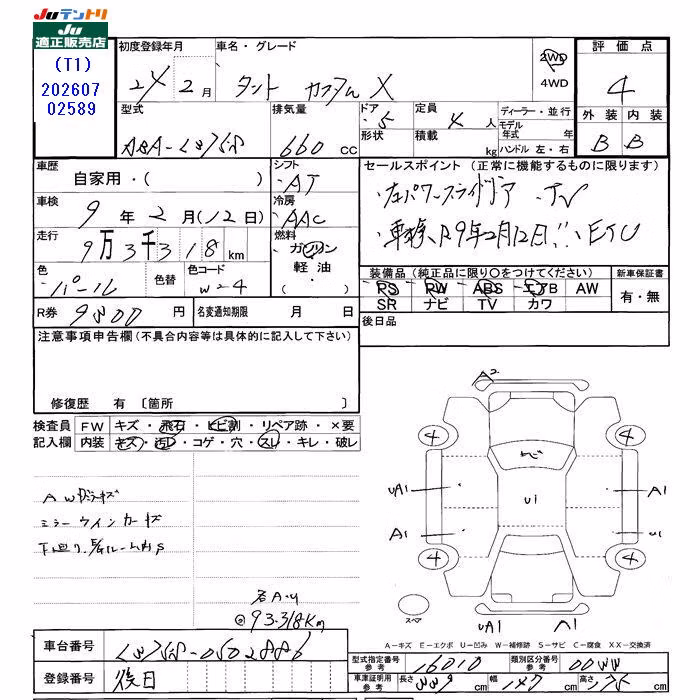 JUテントリ
JU
適正販売店
(T1)
202607
02589
初度登録年月
車名・グレード
評価点
24年2月
タント カスタム X
2WD
4WD
4
型式
排気量
ドア
定員
ディーラー・並行
外装 内装
660 cc
5
4人
モデル
年式 年
形状
積載
kg
ハンドル 左・右
B B
車歴
自家用・( )
シフト
AT
セールスポイント(正常に機能するものに限ります)
・左パワースライドドア ・TV
車検
9年2月(12日)
冷房
AAC
・車検R9年2月12日!! ・ETC
走行
9万3千318km
燃料
ガソリン
軽油・
色
パール
色替
色コード
W-4
装備品(純正品に限り〇をつけてください)
新車保証書
PS PW ABS エアB AW
SR ナビ TV カワ
有・無
R券
円
名変通知期限
月 日
後日品
注意事項申告欄(不具合内容等は具体的に記入して下さい)
修復歴 有 〔箇所 〕
検査員
記入欄
FW
キズ・飛石・ヒビ割・リペア跡・×要
内装
キズ・汚レ・コゲ・穴・スレ・キレ・破レ
ミラーウインカーキズ
@93.318km
A2
4
4
UA1
U1
A1
A1
U1
4
4
スペア
UA1
A1
A-キズ E-エクボ U-凹み W-補修跡 S-サビ C-腐食 XX-交換済
車台番号
登録番号
後日
型式指定番号
参考
16010
類別区分番号
参考
車庫証明用
参考
長さ
cm
幅
147
cm
高さ
175
cm